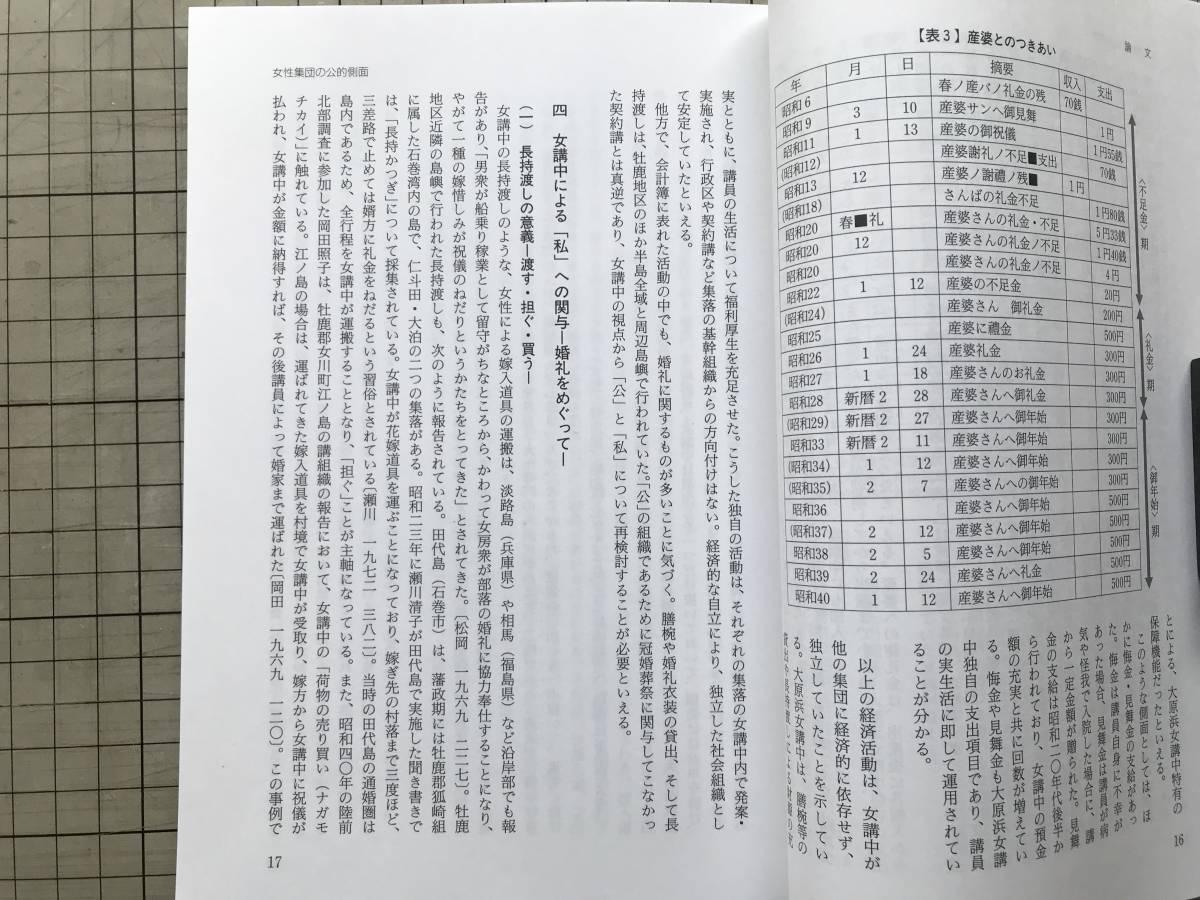 論文
【表3】産婆とのつきあい
年 月 日 摘要 収入 支出
昭和6 春ノ産バノ礼金の残 70銭
昭和9 3 10 産婆サンヘ御見舞 1円
昭和11 1 13 産婆の御祝儀 1円55銭
(昭和12) 産婆謝礼ノ不足■支出 70銭
昭和13 12 産婆ノ謝禮ノ残■ 1円
(昭和18) さんばの礼金不足 1円80銭
昭和20 春■礼 産婆さんの礼金・不足 5円33銭
昭和20 12 産婆さんの礼金ノ不足 1円40銭
昭和20 産婆さんの礼金ノ不足 4円
昭和22 1 12 産婆の不足金 20円
(昭和24) 産婆さん 御礼金 200円
昭和25 産婆に禮金 500円
昭和26 1 24 産婆礼金 300円
昭和27 1 18 産婆さんのお礼金 300円
昭和28 新暦2 28 産婆さんへ御礼金 300円
(昭和29) 新暦2 27 産婆さんへ御年始 300円
昭和33 新暦2 11 産婆さんへ御年始 300円
(昭和34) 1 12 産婆さんへ御年始 300円
(昭和35) 2 7 産婆さんへの御年始 300円
昭和36 産婆さんへ御年始 500円
(昭和37) 2 12 産婆さんへ御年始 500円
昭和38 2 5 産婆さんへ御年始 500円
昭和39 2 24 産婆さんへ礼金 500円
昭和40 1 12 産婆さんへ御年始 500円
〈不足金〉期
〈礼金〉期
〈御年始〉期
とによる、大原浜女講中特有の
保障機能だったといえる。
このような側面としては、ほ
かに悔金・見舞金の支給があっ
た。悔金は講員自身に不幸が
あった場合、見舞金は講員が病
気や怪我で入院した場合に、講
から一定金額が贈られた。見舞
金の支給は昭和二〇年代後半か
ら行われており、女講中の預金
額の充実と共に回数が増えてい
る。悔金や見舞金も大原浜女講
中独自の支出項目であり、講員
の実生活に即して運用されてい
ることが分かる。
以上の経済活動は、女講中が
他の集団に経済的に依存せず、
独立していたことを示してい
る。大原浜女講中は、膳椀等の
16
女性集団の公的側面
実とともに、講員の生活について福利厚生を充足させた。こうした独自の活動は、それぞれの集落の女講中内で発案・
実施され、行政区や契約講など集落の基幹組織からの方向付けはない。経済的な自立により、独立した社会組織とし
て安定していたといえる。
他方で、会計簿に表れた活動の中でも、婚礼に関するものが多いことに気づく。膳椀や婚礼衣装の貸出、そして長
持渡しは、牡鹿地区のほか半島全域と周辺島嶼で行われていた。「公」の組織であるために冠婚葬祭に関与してこなかっ
た契約講とは真逆であり、女講中の視点から「公」と「私」について再検討することが必要といえる。
四 女講中による「私」への関与―婚礼をめぐって―
(一) 長持渡しの意義―渡す・担ぐ・買う―
女講中の長持渡しのような、女性による嫁入道具の運搬は、淡路島(兵庫県)や相馬(福島県)など沿岸部でも報
告があり、「男衆が船乗り稼業として留守がちなところから、かわって女房衆が部落の婚礼に協力奉仕することになり、
やがて一種の嫁惜しみが祝儀のねだりというかたちをとってきた」とされてきた。〔松岡 一九六九 二二七〕。牡鹿
地区近隣の島嶼で行われた長持渡しも、次のように報告されている。田代島(石巻市)は、藩政期には牡鹿郡狐崎組
に属した石巻湾内の島で、仁斗田・大泊の二つの集落がある。昭和二三年に瀬川清子が田代島で実施した聞き書きで
は、「長持かつぎ」について採集されている。女講中が花嫁道具を運ぶことになっており、嫁ぎ先の村落まで三度ほど、
三差路で止めては婿方に礼金をねだるという習俗とされている〔瀬川 一九七二 三八二〕。当時の田代島の通婚圏は
島内であるため、全行程を女講中が運搬することとなり、「担ぐ」ことが主軸になっている。また、昭和四〇年の陸前
北部調査に参加した岡田照子は、牡鹿郡女川町江ノ島の講組織の報告において、女講中の「荷物の売り買い(ナガモ
チカイ)」に触れている。江ノ島の場合は、運ばれてきた嫁入道具を村境で女講中が受取り、嫁方から女講中に祝儀が
払われ、女講中が金額に納得すれば、その後講員によって婚家まで運ばれた〔岡田 一九六九 一二〇〕。この事例で
17